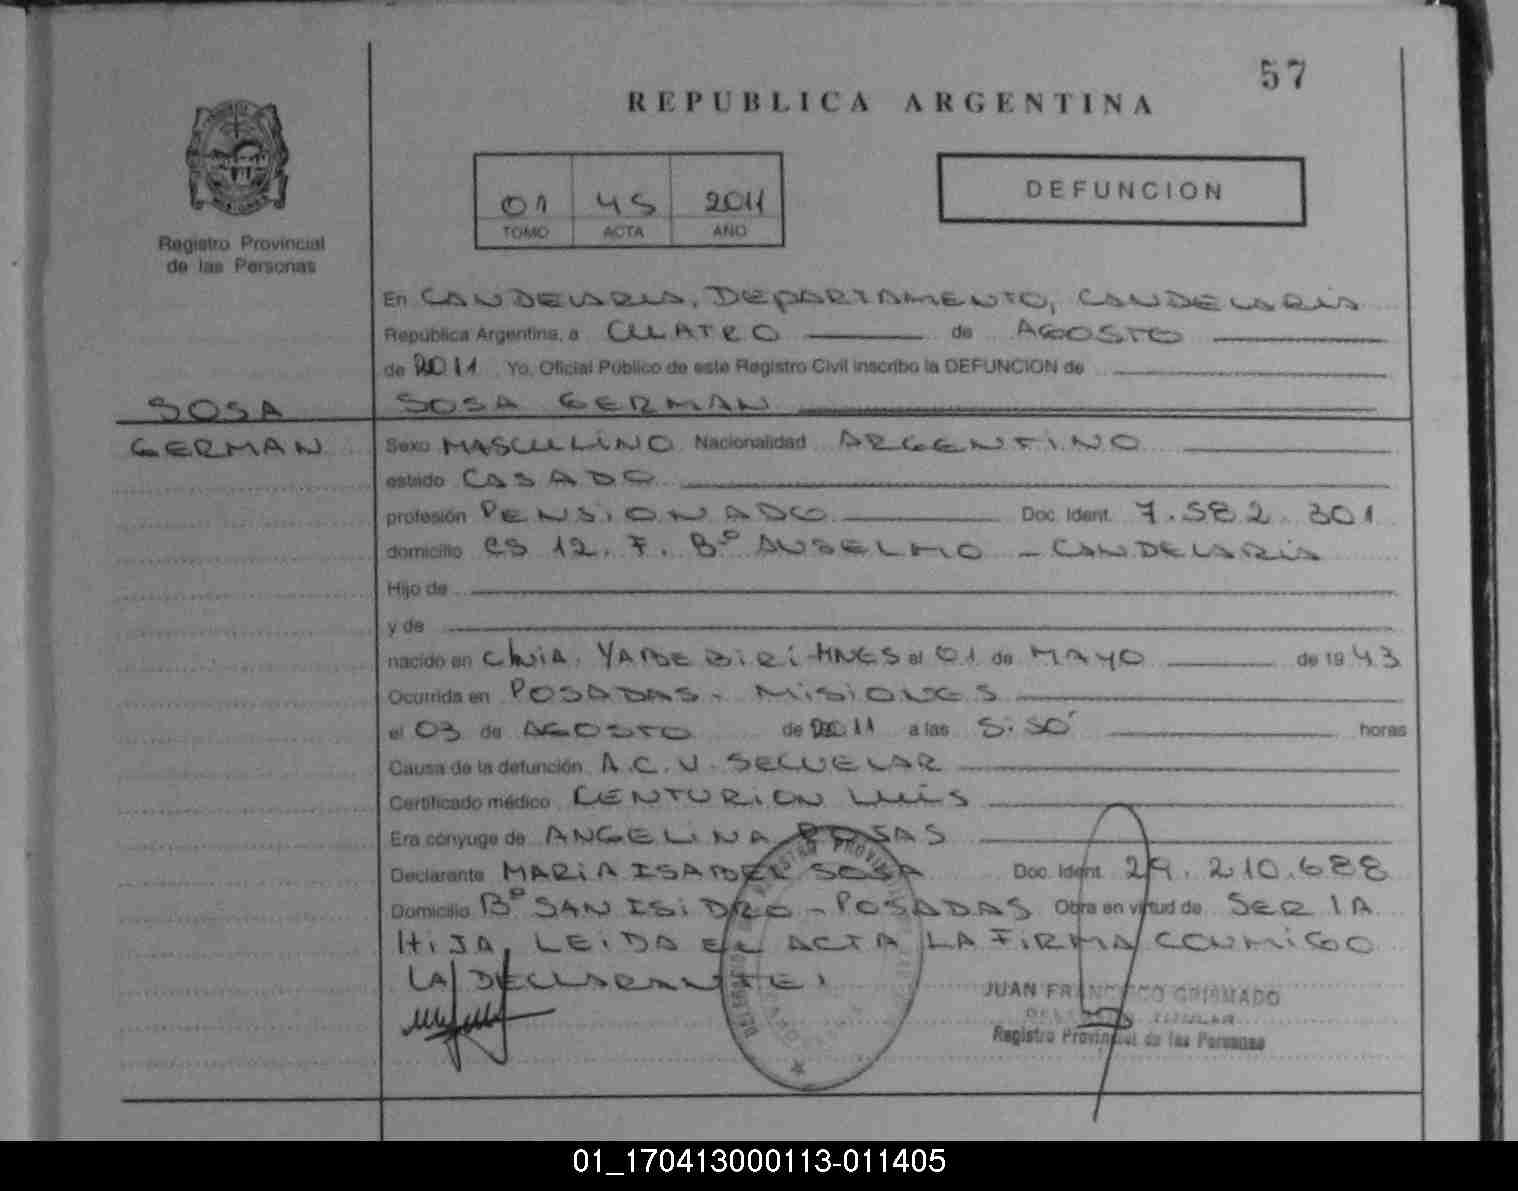 57
REPUBLICA ARGENTINA
01 45 2011
TOMO ACTA AÑO
DEFUNCION
Registro Provincial
de las Personas
En CANDELARIA, DEPARTAMENTO, CANDELARIA
República Argentina, a CUATRO de AGOSTO
de 2011 Yo, Oficial Público de este Registro Civil inscribo la DEFUNCION de
SOSA GERMAN
SOSA
GERMAN
Sexo MASCULINO Nacionalidad ARGENTINO
estado CASADO
profesión PENSIONADO Doc. Ident. 7.582.301
domicilio CS 12. F. Bº ANSELMO - CANDELARIA
Hijo de
y de
nacido en CNIA. YABEBIRI-MNES el 01 de MAYO de 1943
Ocurrida en POSADAS - MISIONES
el 03 de AGOSTO de 2011 a las 5:50 horas
Causa de la defunción A.C.V. SECUELAR
Certificado médico CENTURION LUIS
Era cónyuge de ANGELINA ROSAS
Declarante MARIA ISABEL SOSA Doc. Ident. 29.210.688
Domicilio Bº SAN ISIDRO - POSADAS Obra en virtud de SER LA
HIJA, LEIDA EL ACTA LA FIRMA CONMIGO
LA DECLARANTE.
JUAN FRANCISCO GRISMADO
TITULAR
Registro Provincial de las Personas
01_170413000113-011405